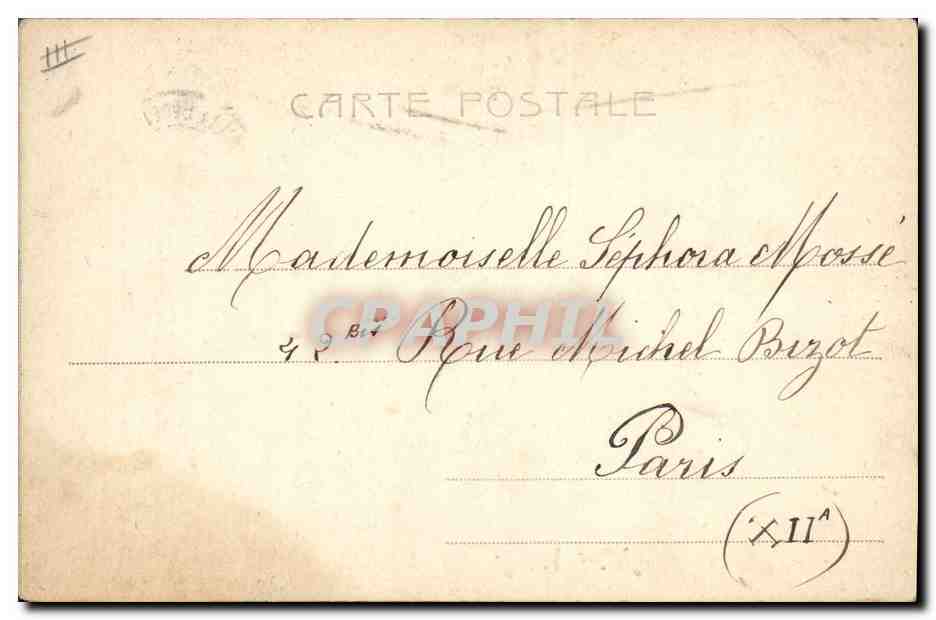 III
CARTE POSTALE
Mademoiselle Séphora Mossé
CPAPHIL
42 Bis Rue Michel Bizot
Paris
(XII A)